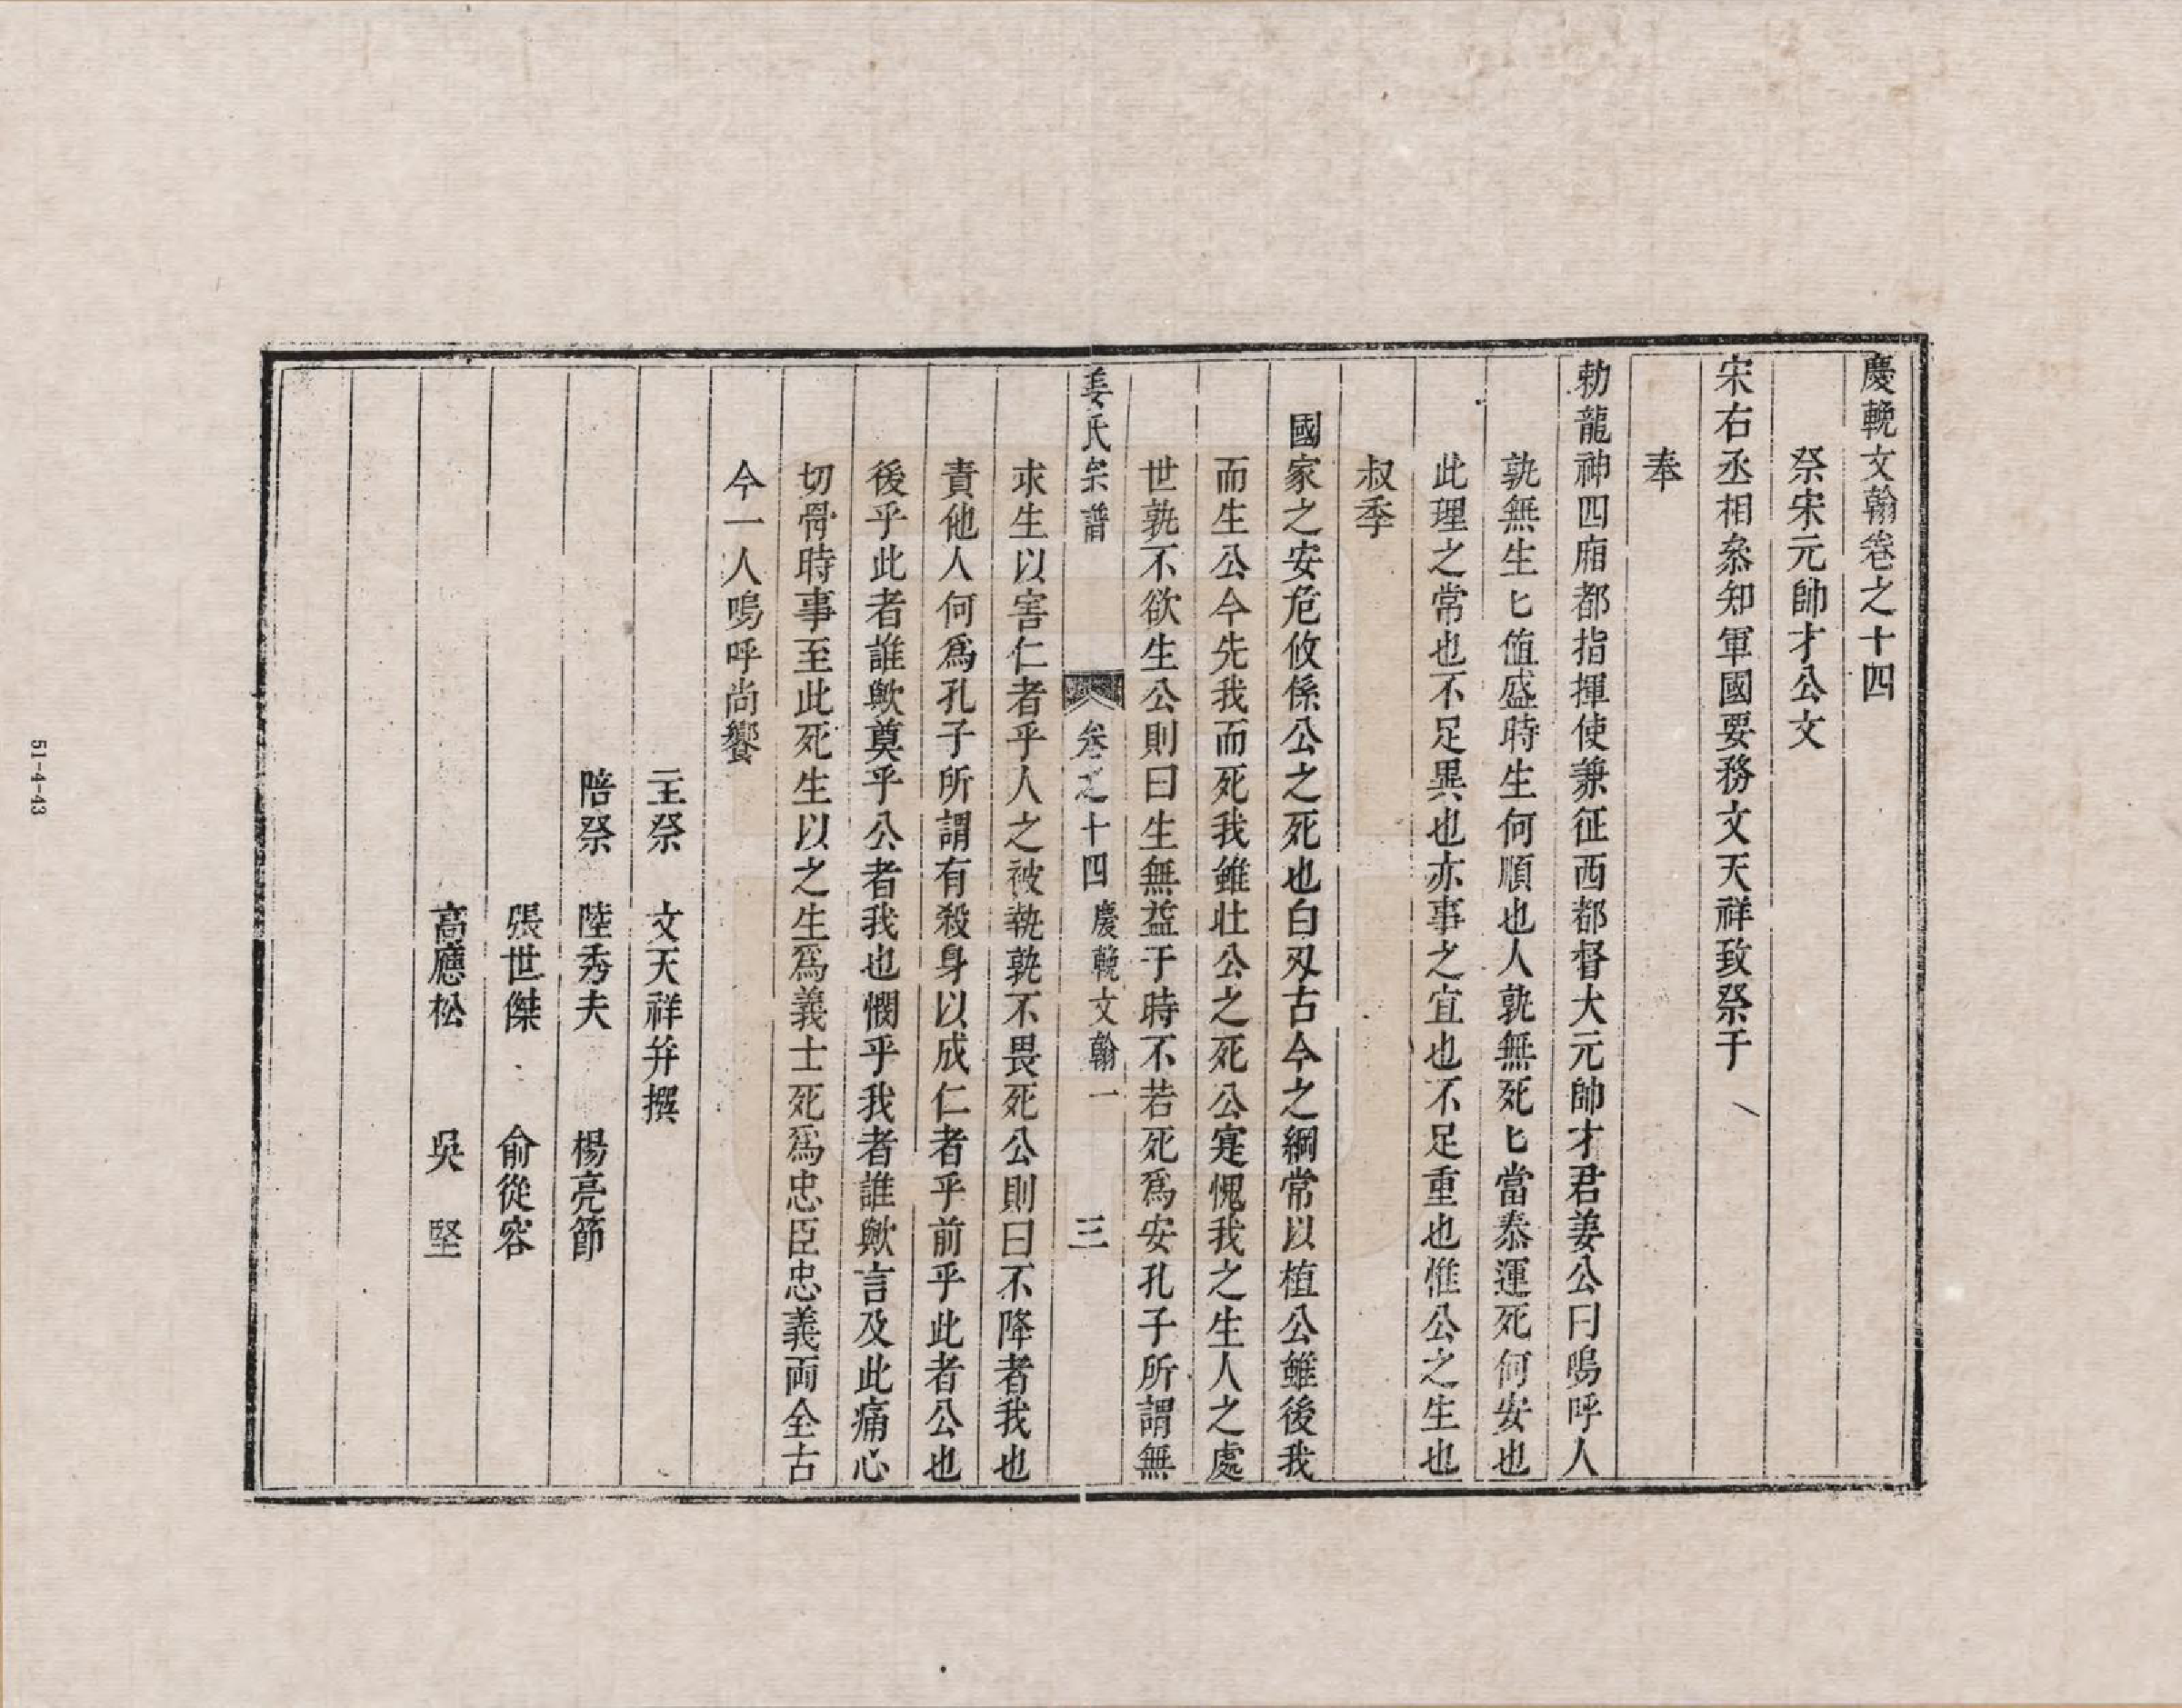 慶輓文翰卷之十四
祭宋元帥才公文
宋右丞相叅知軍國要務文天祥致祭于
奉
勅龍神四廂都指揮使兼征西都督大元帥才君姜公曰嗚呼人
孰無生匕值盛時生何順也人孰無死匕當泰運死何安也
此理之常也不足異也亦事之宜也不足重也惟公之生也
叔季
國家之安危攸係公之死也白刄古今之綱常以植公雖後我
而生公今先我而死我雖壯公之死公寔愧我之生人之處
世孰不欲生公則曰生無益于時不若死爲安孔子所謂無
姜氏宗譜 卷之十四 慶輓文翰一 三
求生以害仁者乎人之被執孰不畏死公則曰不降者我也
責他人何爲孔子所謂有殺身以成仁者乎前乎此者公也
後乎此者誰歟奠乎公者我也憫乎我者誰歟言及此痛心
切骨時事至此死生以之生爲義士死爲忠臣忠義両全古
今一人嗚呼尚饗
主祭 文天祥并撰
陪祭 陸秀夫 楊亮節
張世傑 俞從容
高應松 吳堅
51-4-43